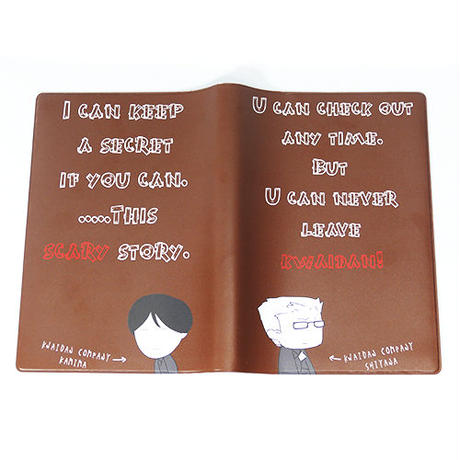 I CAN KEEP
A SECRET
IF YOU CAN.
.....THIS
SCARY STORY.
KWAIDAN COMPANY →
KANIMA
U CAN CHECK OUT
ANY TIME.
BUT
U CAN NEVER
LEAVE
KWAIDAN!
← KWAIDAN COMPANY
SHIYANA